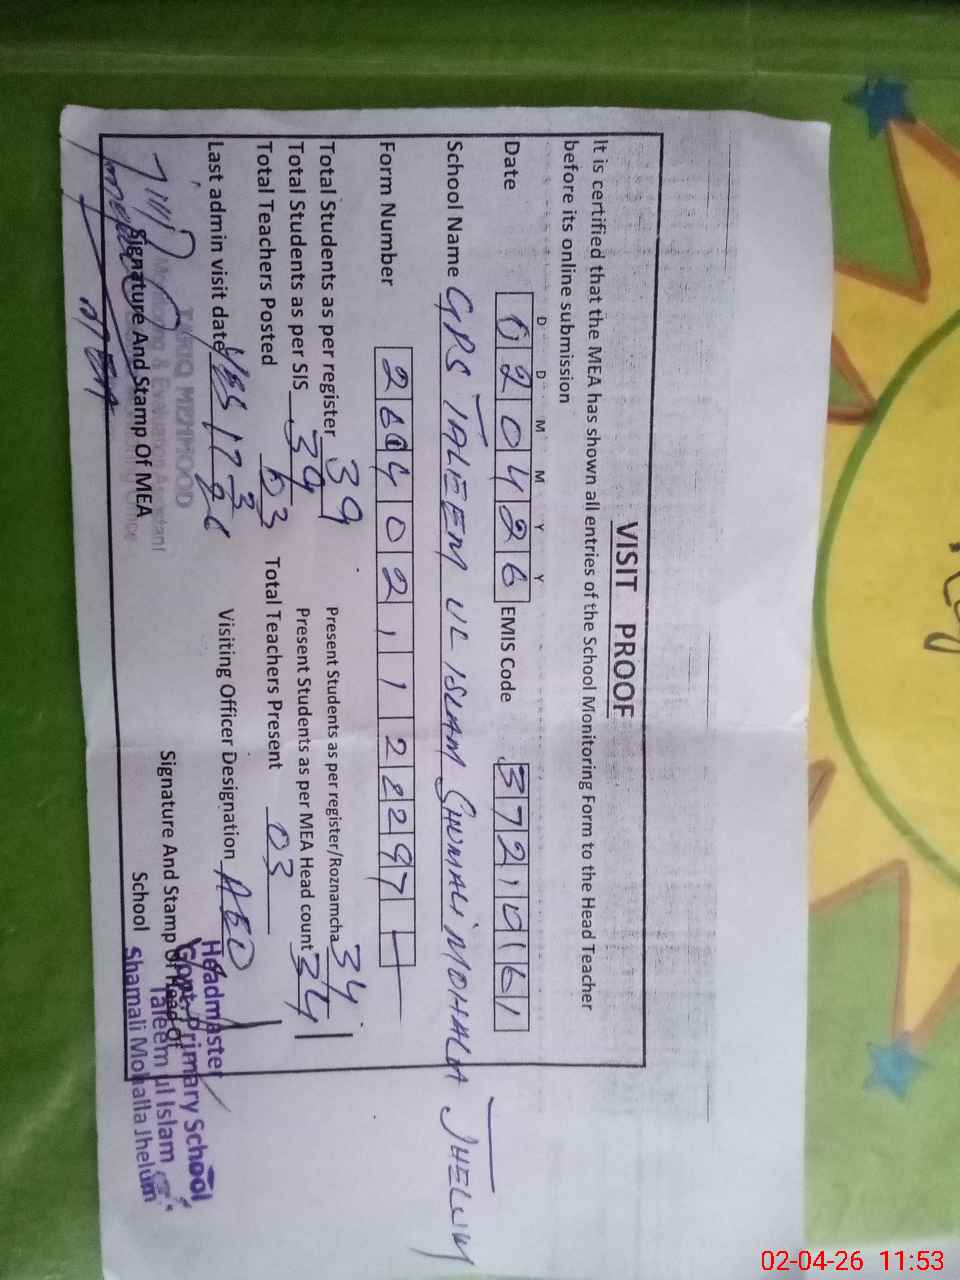 VISIT PROOF
It is certified that the MEA has shown all entries of the School Monitoring Form to the Head Teacher
before its online submission
D D M M Y Y
Date 020426 EMIS Code 37210161
School Name GPS TALEEM UL ISLAM SHUMALI MOHALA JHELUM
Form Number
Total Students as per register 39 Present Students as per register/Roznamcha 34
Total Students as per SIS 39 Present Students as per MEA Head count 34
Total Teachers Posted 03 Total Teachers Present 03
Last admin visit date Yes 17 3 26 Visiting Officer Designation AEO
TARIQ MEHMOOD
Monitoring & Evaluation Assistant
Signature And Stamp Of MEA
MEA
Signature And Stamp Of Head Of
School
Headmaster
Govt. Primary School
Taleem ul Islam
Shamali Mohalla Jhelum
02-04-26 11:53